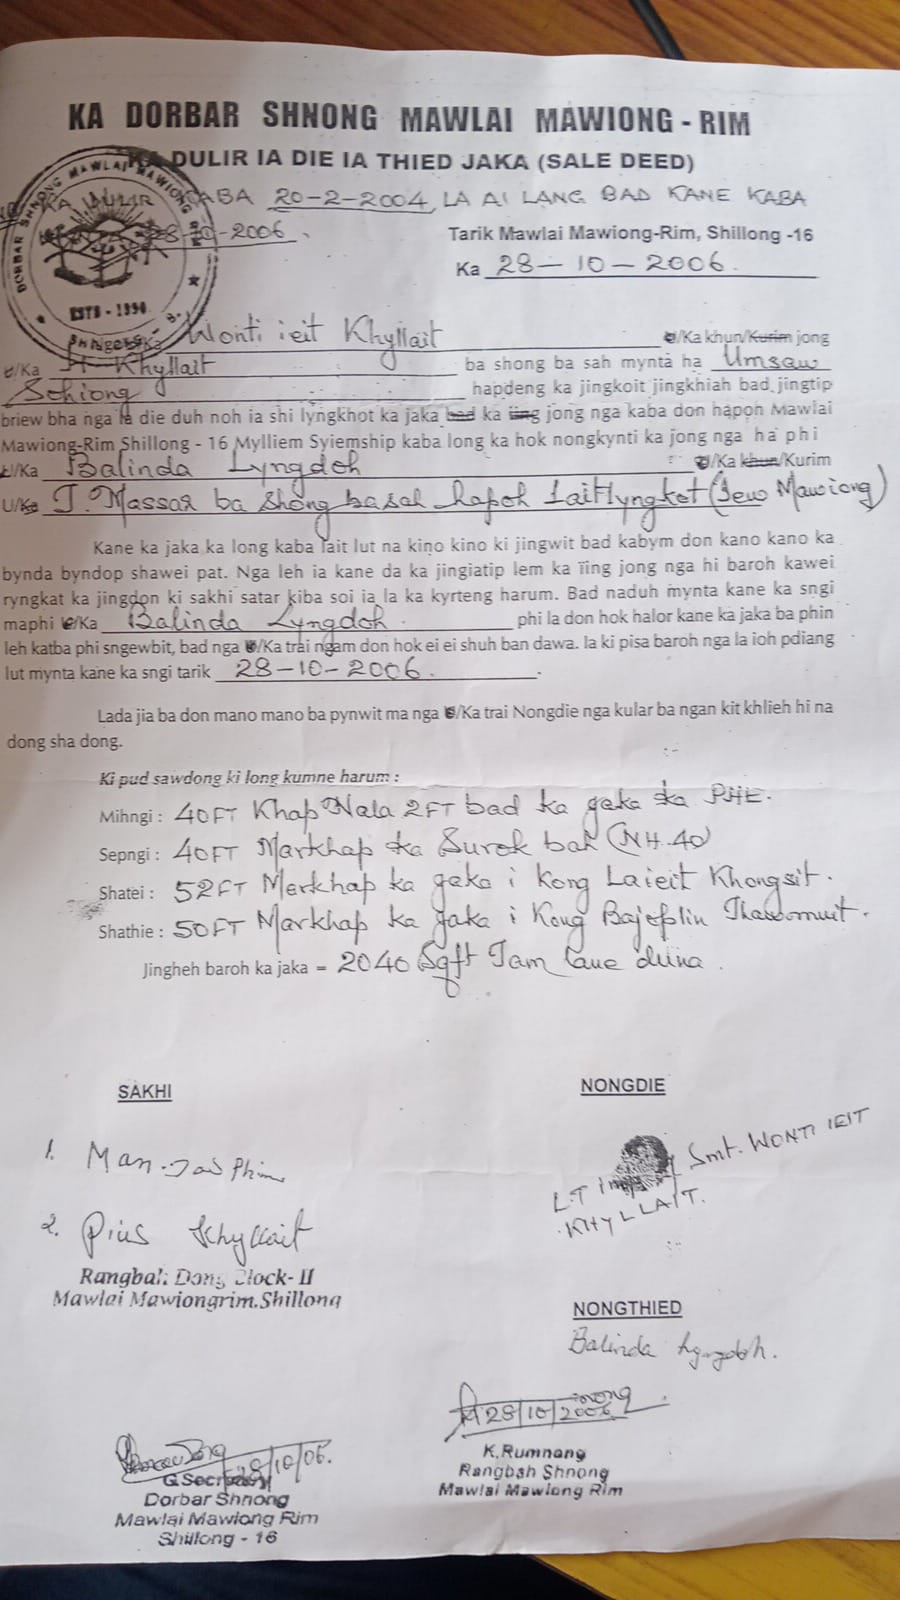 KA DORBAR SHNONG MAWLAI MAWIONG - RIM
KA DULIR IA DIE IA THIED JAKA (SALE DEED)
KA DULIR KABA 20-2-2004, LA AI LANG BAD KANE KABA
28-10-2006.
Tarik Mawlai Mawiong-Rim, Shillong -16
Ka 28-10-2006.
DORBAR SHNONG MAWLAI MAWIONG
ESTD - 1994
Wonti ieit Khyllait /Ka khun/Kurim jong
/Ka H Khyllait ba shong ba sah mynta ha Umsaw
hapdeng ka jingkoit jingkhiah bad jingtip
briew bha nga la die duh noh ia shi lyngkhot ka jaka bad ka iing jong nga kaba don hapoh Mawlai
Mawiong-Rim Shillong - 16 Mylliem Syiemship kaba long ka hok nongkynti ka jong nga ha phi
U/Ka Balinda Lyngdoh U/Ka khun/Kurim
U/Ka T. Massar ba shong basah hapoh Laitlyngkot (Iew Mawiong)
Kane ka jaka ka long kaba lait lut na kino kino ki jingwit bad kabym don kano kano ka
bynda byndop shawei pat. Nga leh ia kane da ka jingiatip lem ka iing jong nga hi baroh kawei
ryngkat ka jingdon ki sakhi satar kiba soi ia la ka kyrteng harum. Bad naduh mynta kane ka sngi
maphi U/Ka Balinda Lyngdoh. phi la don hok halor kane ka jaka ba phin
leh katba phi sngewbit, bad nga U/Ka trai ngam don hok ei ei shuh ban dawa. la ki pisa baroh nga la ioh pdiang
lut mynta kane ka sngi tarik 28-10-2006.
Lada jia ba don mano mano ba pynwit ma nga U/Ka trai Nongdie nga kular ba ngan kit khlieh hi na
dong sha dong.
Ki pud sawdong ki long kumne harum :
Mihngi : 40FT Khap Nala 2FT bad ka jaka ka PHE.
Sepngi : 40FT Markhap ka Surok bah (NH-40)
Shatei : 52FT Merkhap ka jaka i Kong Laieit Khongsit.
Shathie : 50FT Markhap ka jaka i Kong
Jingheh baroh ka jaka = 2040 Sqft Tam lane duna.
SAKHI
NONGDIE
1.
2. Pius Khyllait
Rangbah Dong Block- II
Mawlai Mawiongrim, Shillong
L.T Smt. WONTI IEIT
KHYLLAIT.
NONGTHIED
Balinda Lyngdoh.
28/10/2006
K. Rumnong
Rangbah Shnong
Mawlai Mawiong Rim
28/10/06.
G. Secretary
Dorbar Shnong
Mawlai Mawiong Rim
Shillong - 16